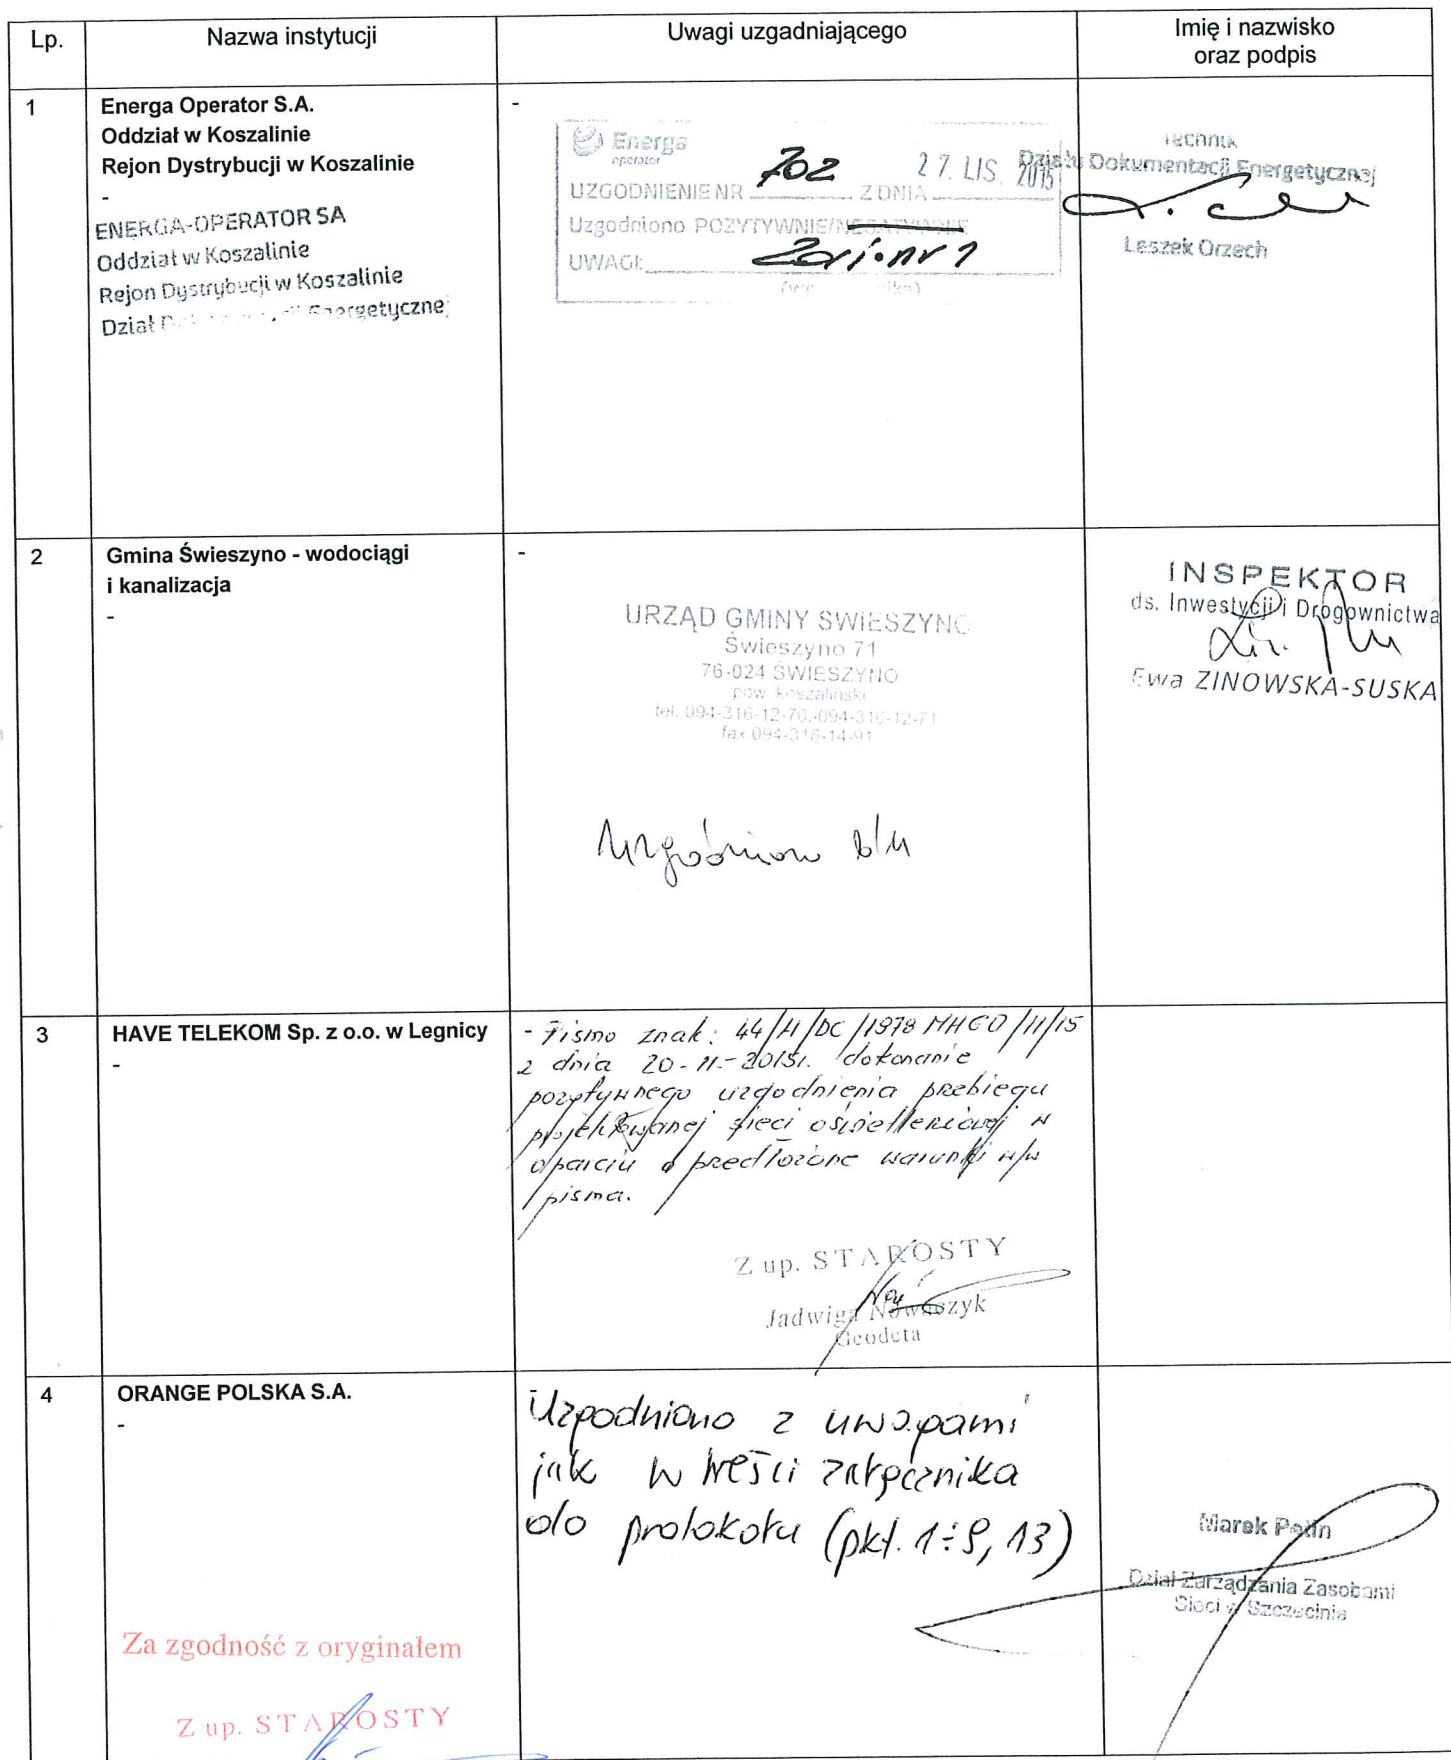 Lp.
Nazwa instytucji
Uwagi uzgadniającego
Imię i nazwisko
oraz podpis
1
Energa Operator S.A.
Oddział w Koszalinie
Rejon Dystrybucji w Koszalinie
-
ENERGA-OPERATOR SA
Oddział w Koszalinie
Rejon Dystrybucji w Koszalinie
Dział Energetycznej
-
Energa
operator
UZGODNIENIE NR 702 Z DNIA 27. LIS. 2015
Uzgodniono POZYTYWNIE/NEGATYWNIE
UWAGI: nr 1
Technik
Działu Dokumentacji Energetycznej
Leszek Orzech
2
Gmina Świeszyno - wodociągi
i kanalizacja
-
-
URZĄD GMINY SWIESZYNO
Świeszyno 71
76-024 ŚWIESZYNO
pow. koszaliński
tel. 094-316-12-70, 094-316-12-71
fax 094-316-14-91
Uzgodniono b/u
INSPEKTOR
ds. Inwestycji i Drogownictwa
Ewa ZINOWSKA-SUSKA
3
HAVE TELEKOM Sp. z o.o. w Legnicy
-
- Pismo znak: 44/H/DC/1978 /11/15
z dnia 20-11-2015r. dokonanie
pozytywnego uzgodnienia przebiegu
projektowanej sieci oświetleniowej w
oparciu o przedłożone warunki w/w
pisma.
Z up. STAROSTY
Jadwiga Nowaczyk
Geodeta
4
ORANGE POLSKA S.A.
-
Uzgodniono z uwagami
jak w treści załącznika
do protokołu (pkt. 1÷9, 13)
Marek
Dział Zarządzania Zasobami
Sieci w Szczecinie
Za zgodność z oryginałem
Z up. STAROSTY